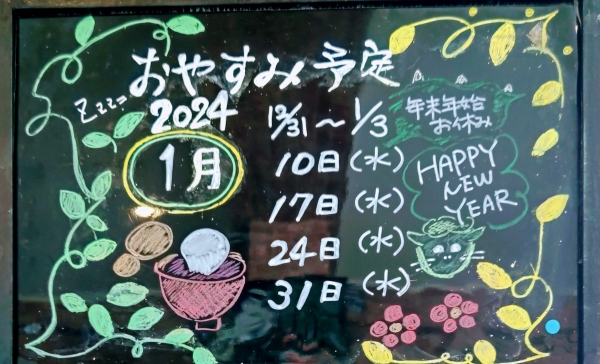 おやすみ予定
Zzz=
2024
1月
12/31〜1/3
年末年始
お休み
10日(水)
17日(水)
24日(水)
31日(水)
HAPPY
NEW
YEAR